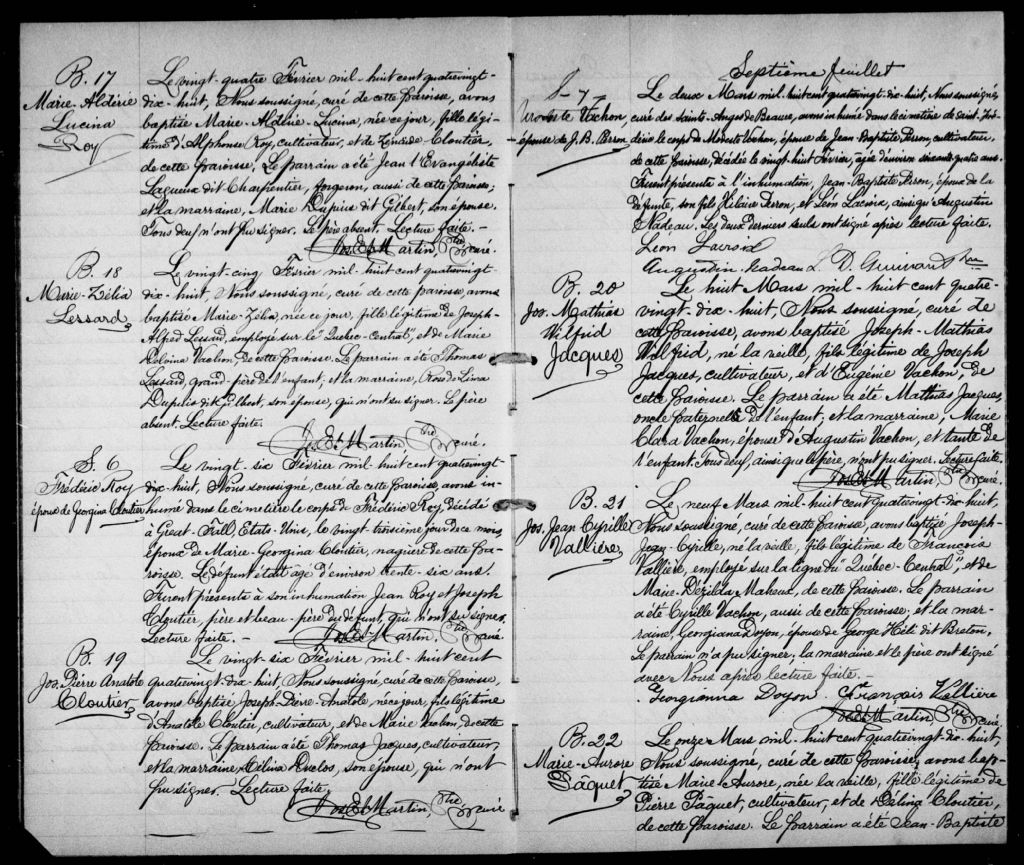 B. 17
Marie-Aldérie
Lucina
Roy
Le vingt-quatre Février mil-huit cent quatrevingt-
dix-huit, Nous soussigné, curé de cette paroisse, avons
baptisé Marie-Aldérie-Lucina, née ce jour, fille légi-
time d'Alphonse Roy, cultivateur, et de Zénaïde Cloutier,
de cette paroisse. Le parrain a été Jean l'Evangéliste
Lagueux dit Charpentier, forgeron, aussi de cette paroisse;
et la marraine, Marie Dupuis dit Gilbert, son épouse.
Tous deux n'ont pu signer. Le père absent. Lecture faite. -
Jos. E. Martin, Ptre curé.
B. 18
Marie-Zélia
Lessard
Le vingt-cinq Février mil-huit cent quatrevingt-
dix-huit, Nous soussigné, curé de cette paroisse, avons
baptisé Marie-Zélia, née ce jour, fille légitime de Joseph-
Alfred Lessard, employé sur le "Québec-Central", et de Marie
Vachon, de cette paroisse. Le parrain a été Thomas
Lessard, grand-père de l'enfant, et la marraine, Rose de Lima
Dupuis dit Gilbert, son épouse, qui n'ont su signer. Le père
absent. Lecture faite.
Jos. E. Martin Ptre curé.
S. 6
Frédéric Roy
époux de Georgina Cloutier
Le vingt-six Février mil-huit cent quatrevingt-
dix-huit, Nous soussigné, curé de cette paroisse, avons in-
humé dans le cimetière le corps de Frédéric Roy, décédé
à Great-Fall, Etats-Unis, le vingt-troisième jour de ce mois,
époux de Marie-Georgina Cloutier, naguère de cette pa-
roisse. Le défunt était âgé d'environ trente-six ans.
Furent présents à son inhumation Jean Roy et Joseph
Cloutier, père et beau-père du défunt, qui n'ont su signer.
Lecture faite. -
Jos. E. Martin, Ptre curé
B. 19
Jos. Pierre Anatole
Cloutier
Le vingt-six Février mil-huit cent
quatrevingt-dix-huit. Nous soussigné, curé de cette paroisse,
avons baptisé Joseph-Pierre-Anatole, né ce jour, fils légitime
d'Anatole Cloutier, cultivateur, et de Marie Vachon, de cette
paroisse. Le parrain a été Thomas Jacques, cultivateur,
et la marraine, Célina Duclos, son épouse, qui n'ont
pu signer. Lecture faite.
Jos. E. Martin, Ptre curé
Septième feuillet
S-7
Modeste Vachon,
épouse de J. B. Perron
Le deux Mars mil-huit cent quatrevingt-dix-huit, Nous soussigné,
curé des Saints-Anges de Beauce, avons inhumé dans le cimetière de Saint-Jos-
le corps de Modeste Vachon, épouse de Jean-Baptiste Perron, cultivateur,
de cette paroisse, décédée le vingt-huit Février, âgée d'environ soixante quatre ans.
Furent présents à l'inhumation, Jean-Baptiste Perron, époux de la
défunte, son fils Hilaire Perron, et Léon Lacroix, ainsi que Augustin
Nadeau. Les deux derniers seuls ont signé après lecture faite.
Léon Lacroix
Augustin Nadeau Ptre
B. 20
Jos. Mathias
Wilfrid
Jacques
Le huit Mars mil-huit cent quatre-
vingt-dix-huit, Nous soussigné, curé de
cette paroisse, avons baptisé Joseph-Mathias
Wilfrid, né la veille, fils légitime de Joseph
Jacques, cultivateur, et d'Eugénie Vachon, de
cette paroisse. Le parrain a été Matthias Jacques,
oncle paternel de l'enfant, et la marraine, Marie
Clara Vachon, épouse d'Augustin Vachon, et tante de
l'enfant. Tous deux, ainsi que le père, n'ont pu signer. Lecture faite.
Jos. E. Martin, Ptre curé.
B. 21
Jos. Jean Cyrille
Vallière
Le neuf Mars mil-huit cent quatrevingt-dix-huit,
Nous soussigné, curé de cette paroisse, avons baptisé Joseph-
Jean-Cyrille, né la veille, fils légitime de François
Vallière, employé sur la ligne du "Québec-Central", et de
Marie-Dézilda Maheux, de cette paroisse. Le parrain
a été Cyrille Vachon, aussi de cette paroisse, et la mar-
raine, Georgiana Doyon, épouse de George Héli dit Breton.
Le parrain n'a pu signer; la marraine et le père ont signé
avec Nous après lecture faite. -
Gorgianna Doyon François Vallière
Jos. E. Martin, Ptre curé
B. 22
Marie-Aurore
Pâquet
Le onze Mars mil-huit cent quatrevingt-dix-huit,
Nous soussigné, curé de cette paroisse, avons bap-
tisé Marie-Aurore, née la veille, fille légitime de
Pierre Pâquet, cultivateur, et de Délina Cloutier,
de cette paroisse. Le parrain a été Jean-Baptiste